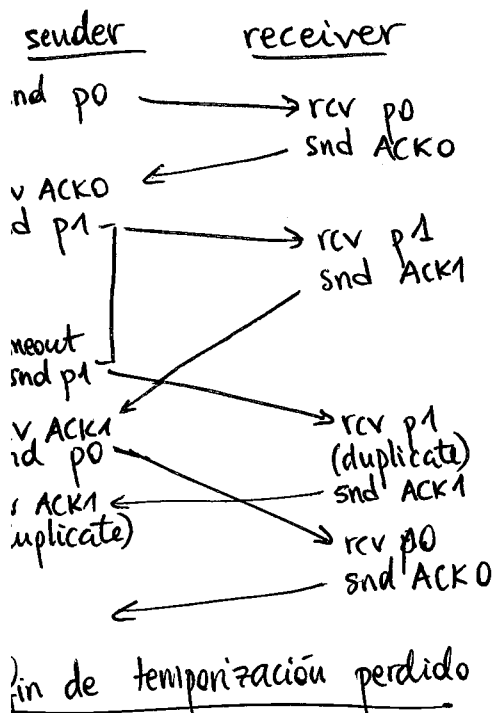 sender receiver
nd p0
rcv p0
snd ACK0
v ACK0
d p1
rcv p1
snd ACK1
meout
snd p1
v ACK1
nd p0
rcv p1
(duplicate)
snd ACK1
v ACK1
uplicate)
rcv p0
snd ACK0
in de temporización perdido